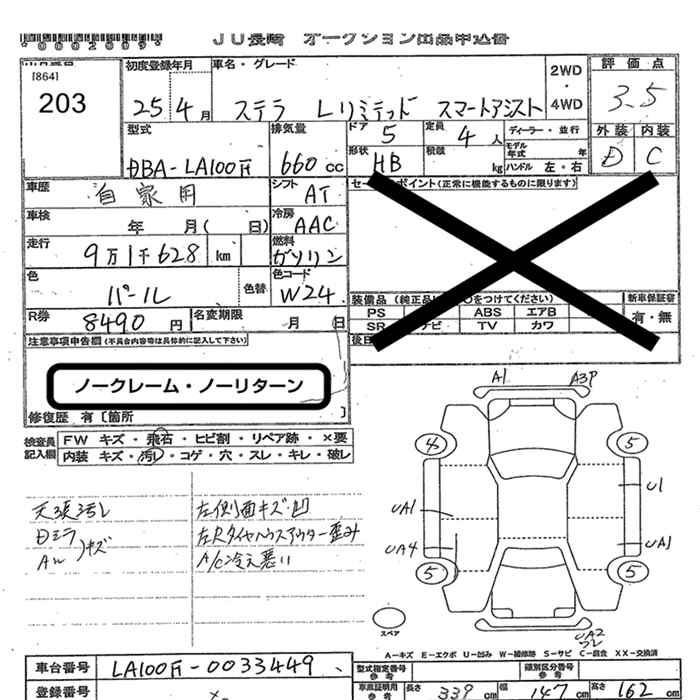 *0002009*
JU長崎 オークション出品申込書
[864]
203
初度登録年月
25年4月
車名・グレード
ステラ Lリミテッド スマートアシスト
2WD
・
4WD
評価点
3.5
外装 内装
D C
型式
DBA-LA100F
排気量
660cc
ドア
5
定員
4人
ディーラー・並行
形状
HB
積載
kg
モデル年式
年
ハンドル 左・右
車歴
自家用
シフト
AT
車検
年 月( 日)
冷房
AAC
走行
9万1千628 km
燃料
ガソリン
色
パール
色替
色コード
W24
R券
8490円
名変期限
月 日
(正常に機能するものに限ります)
装備品
PS
ABS エアB
SR
TV カワ
新車保証書
有・無
注意事項申告欄(不具合内容等は具体的に記入して下さい)
ノークレーム・ノーリターン
修復歴 有〔箇所 〕
検査員記入欄
FW キズ・飛石・ヒビ割・リペア跡・×要
内装 キズ・汚レ・コゲ・穴・スレ・キレ・破レ
天張汚レ
Dミラ
AW キズ
左側面キズ・凹
左Rタイヤハウスアウター歪み
A/C冷え悪い
A1 A3P
4 5
U1
UA1
UA4 UA1
5 5
スペア
UA2
A-キズ E-エクボ U-凹み W-補修跡 S-サビ C-腐食 XX-交換済
車台番号
LA100F-0033449
登録番号
型式指定番号
類別区分番号
長さ 339 cm 幅 147 cm 高さ 162 cm